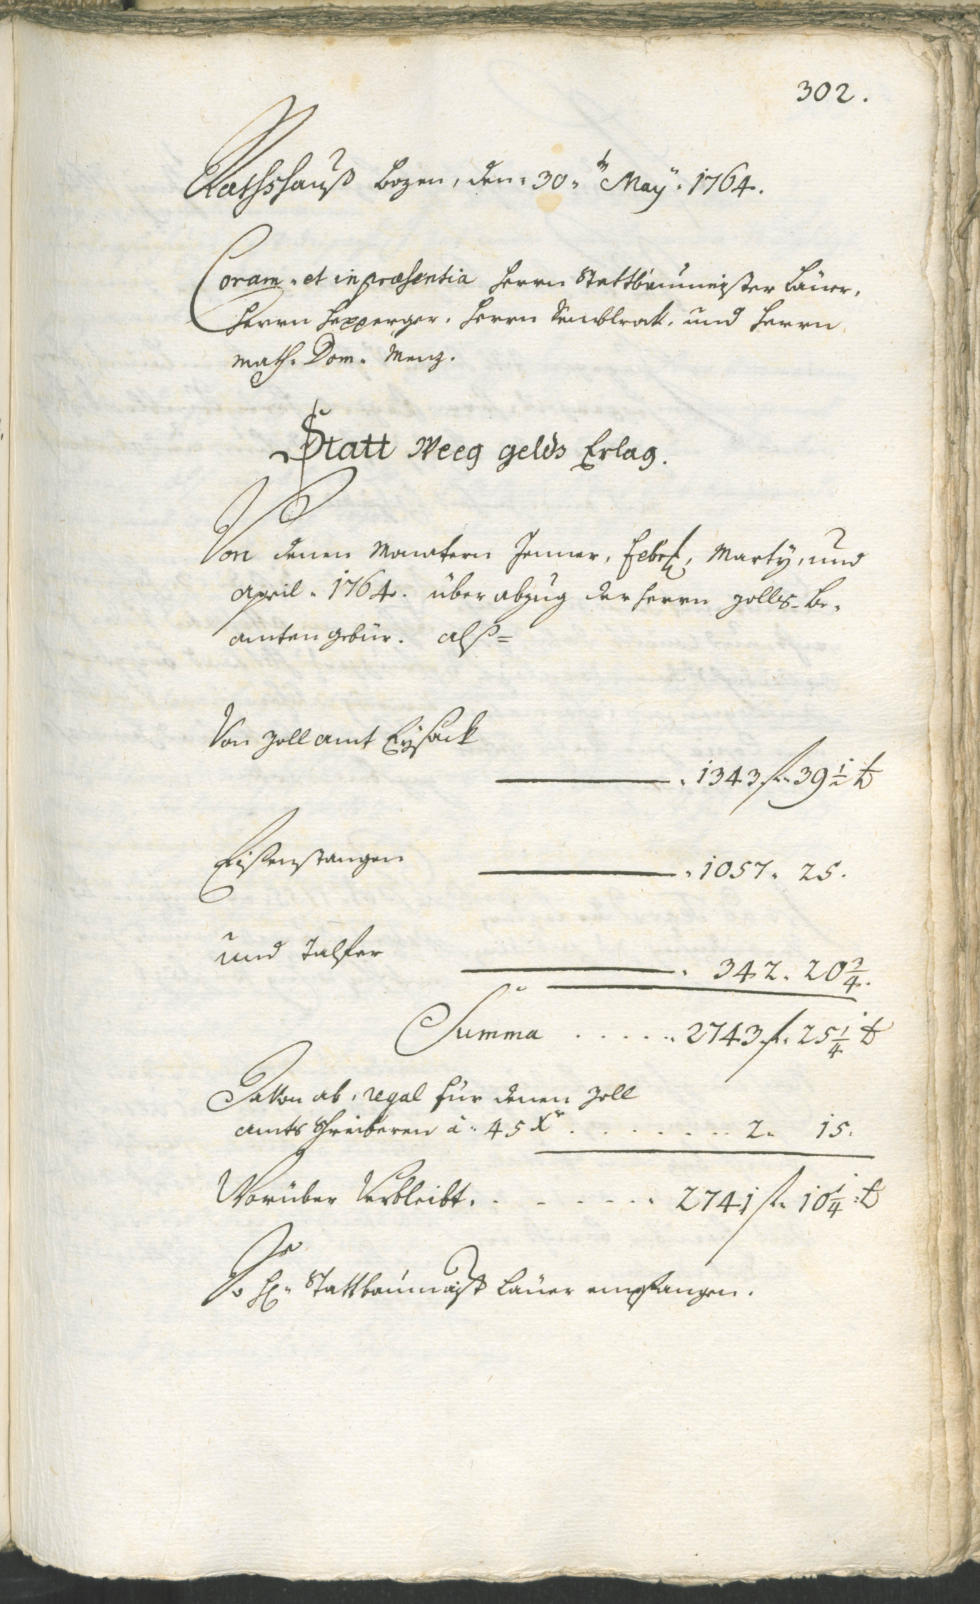 302.
Rathshauß Bozen, den 30.ten May. 1764.
Coram et in præsentia Herrn Stattbaumeister Lauer,
Herrn Hepperger. Herrn , und Herrn
Math. Dom. Menz.
Statt Weeg gelds Erlag.
Von denen Monatern Jenner, Febr., Marty, und
April. 1764. über abzug der Herrn Zolls-be-
amten gebür. alß=
Von Zollamt Eysack
1343 f. 39 1/2 x
Eisenstangen
1057. 25.
und Talfer
342. 20 3/4.
Summa ..... 2743 f. 25 1/4 x
Davon ab, regal für denen Zoll
amts Schreiberen à 45 xr. ....... 2. 15.
Worüber Verbleibt. ...... 2741 f. 10 1/4 x
So H. Stattbaumaist. Lauer empfangen.